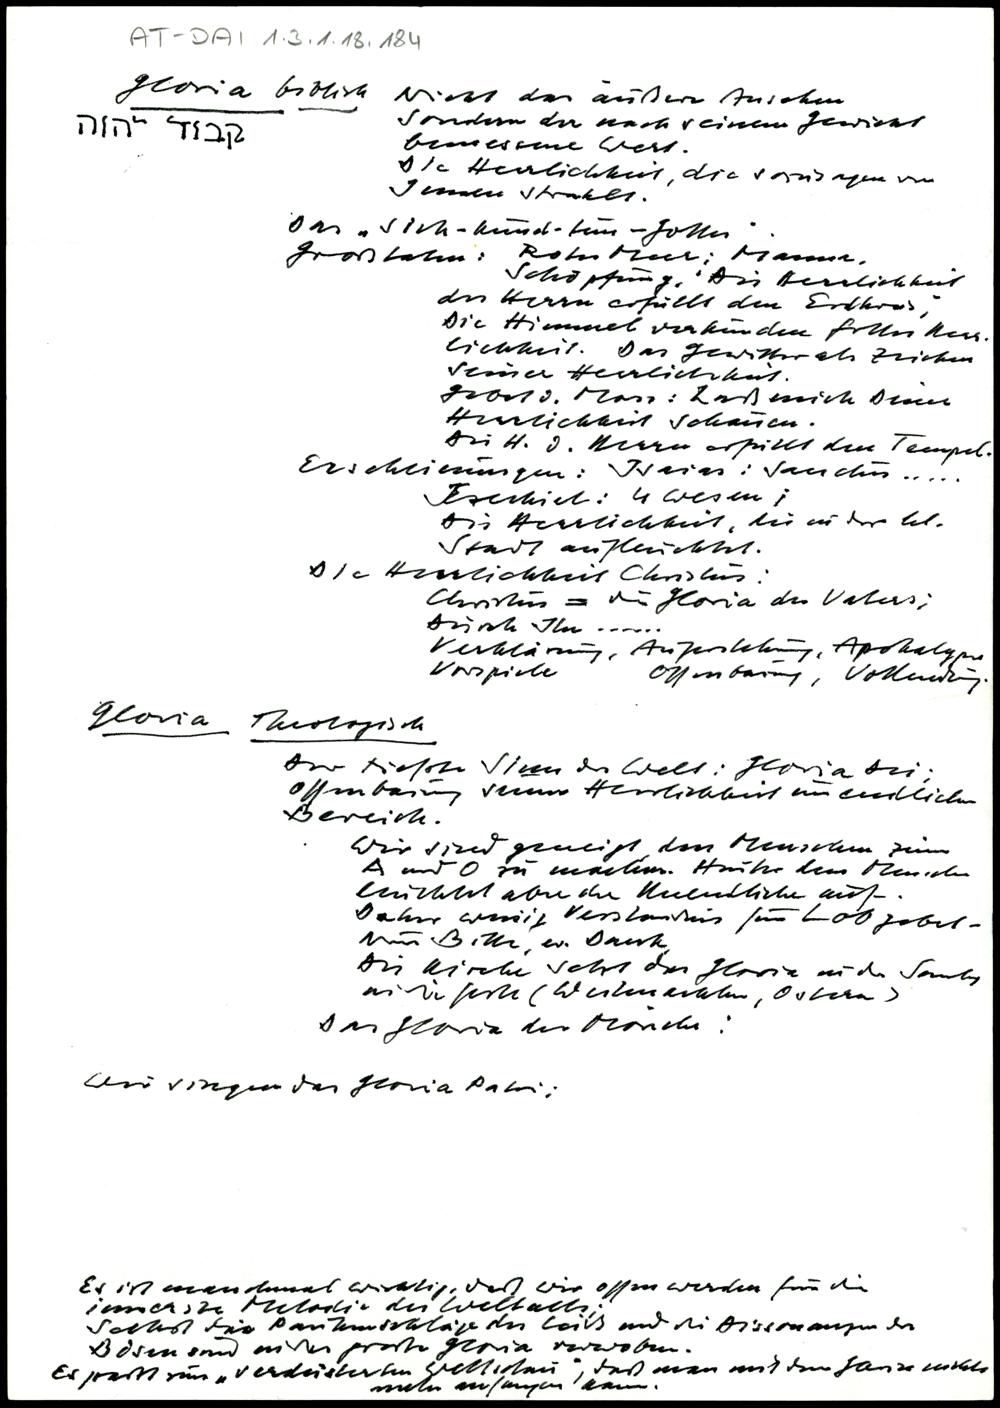 AT-DAI 1.3.1.18.184
Gloria biblisch Nicht das äußere Ansehen
כבוד יהוה sondern der nach seinem Gewicht
bemessene Wert.
Die Herrlichkeit, die sozusagen von
Innen strahlt.
Das „Sich-kund-tun-Gottes".
Großtaten: Rotes Meer; Manna.
Schöpfung, "Die Herrlichkeit
des Herrn erfüllt den Erdkreis",
Die Himmel verkünden Gottes Herr-
lichkeit. Das Gewitter als Zeichen
seiner Herrlichkeit.
Gebet d. Mose: Laß mich Deine
Herrlichkeit schauen.
Die H. d. Herrn erfüllt den Tempel.
Erscheinungen: Isaias: Sanctus .....
Ezechiel: 4 Wesen;
Die Herrlichkeit, die in der hl.
Stadt aufleuchtet.
Die Herrlichkeit Christus:
Christus = die Gloria des Vaters;
Durch Ihn ......
Verklärung, Auferstehung, Apokalypse
Vorspiele Offenbarung, Vollendung.
Gloria Theologisch
Der tiefste Sinn der Welt: Gloria Dei;
Offenbarung seiner Herrlichkeit im endlichen
Bereich.
Wir sind geneigt, den Menschen zum
A und O zu machen. Hinter dem Menschen
leuchtet aber der Unendliche auf.
Daher wenig Verständnis für Lobgebet-
Nur Bitte, ev. Dank,
Die Kirche setzt das Gloria an die
an die Feste (Weihnachten, Ostern)
Das Gloria der Mönche:
Wir singen das Gloria Patri;
Es ist manchmal wichtig, daß wir offen werden für die
innerste Melodie des Weltalls;
Selbst die Paukenschläge des Leids und die Dissonanzen des
Bösen sind in das große Gloria verwoben.
Es passt zum „verdüsterten Weltschau", daß man mit dem Ganzen nichts
mehr anfangen kann.